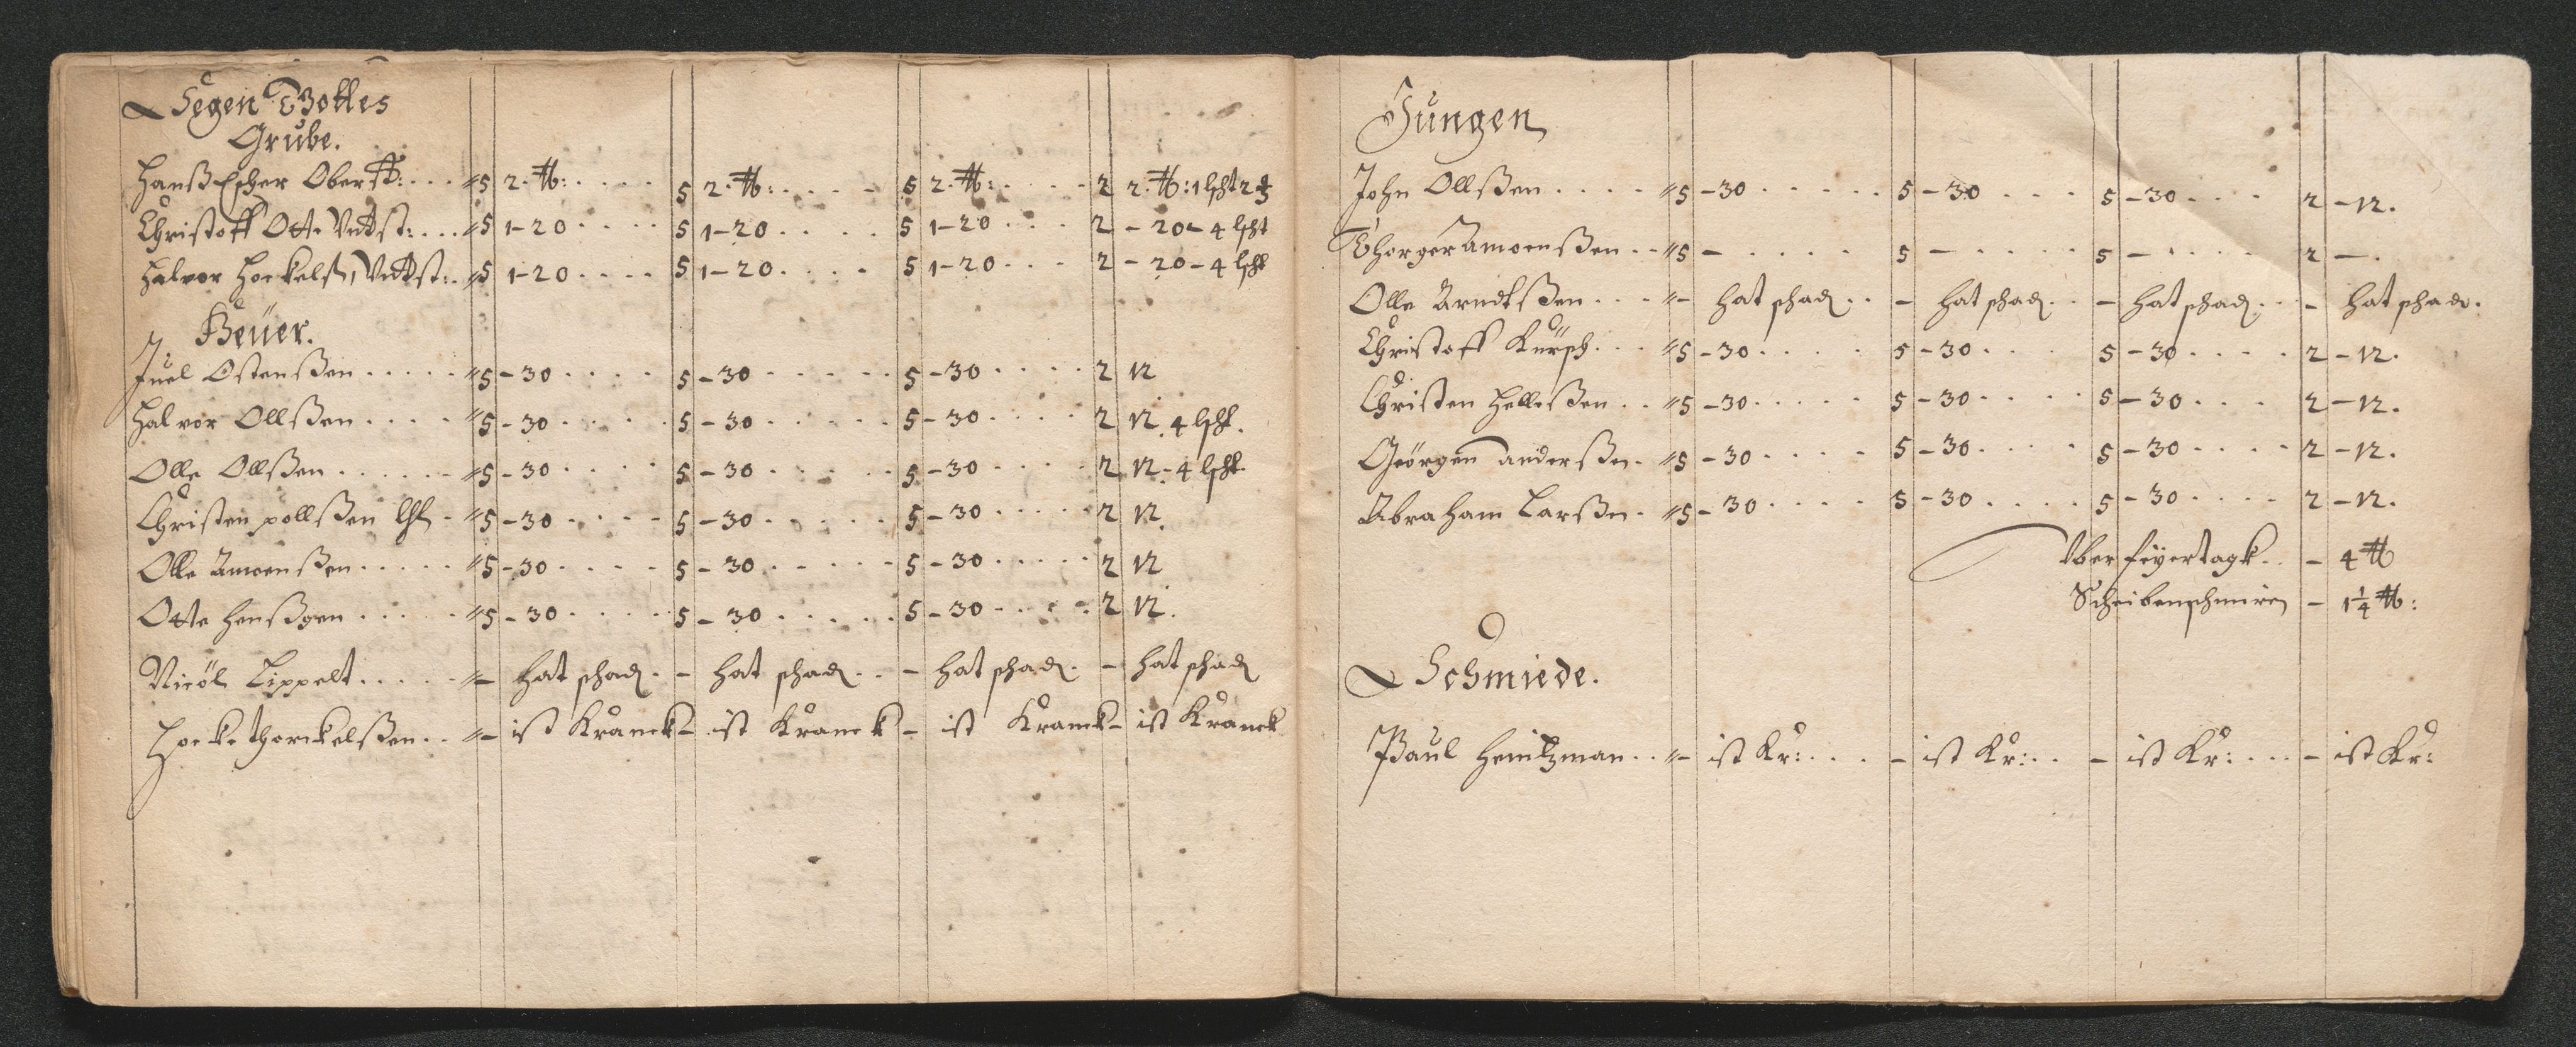 Segen Gottes
Grube.
Hanß Escher Oberst: . . . 5 2. ℔: . . . . 5 2. ℔: . . . . 5 2. ℔: . . . . 2 2. ℔: 1 lſcht 2
Christoff Otte Undtst: . . . 5 1-20 . . . . 5 1-20 . . . . 5 1-20 . . . . 2 - 20 - 4 lſcht
Halvor Undtst: . . 5 1-20 . . . . 5 1-20 . . . . 5 1-20 . . . 2 - 20 - 4 lſcht
Heüer.
Juel Ostenßen . . . . . 5 - 30 . . . . 5 - 30 . . . . . 5 - 30 . . . . 2 12
Halvor Ollßen . . . . 5 - 30 . . . . 5 - 30 . . . . . 5 - 30 . . . . 2 12. 4 lſcht.
Olle Ollßen . . . . . 5 - 30 . . . . 5 - 30 . . . . . 5 - 30 . . . . 2 12 - 4 lſcht
Christen pollßen . 5 - 30 . . . . 5 - 30 . . . . . 5 - 30 . . . . . 2 12.
Olle Amoenßen . . . . . 5 - 30 . . . . 5 - 30 . . . . . 5 - 30 . . . . . 2 12
Otte Henßgen . . . . . 5 - 30 . . . . 5 - 30 . . . . . 5 - 30 . . . . 2 12.
Nicöl Lippelt . . . . . - hat schad. - hat schad. . - hat schad. - hat schad
thorckelßen . . - ist Kranck - ist Kranck - ist Kranck - ist Kranck
Jungen
John Ollßen . . . . 5 - 30 . . . . . 5 - 30 . . . . 5 - 30 . . . . 2 - 12.
Thorger Amoenßen . . 5 - . . . . . 5 - . . . . . 5 - . . . . 2 - .
Olle Arndtßen . . . - hat schad . . - hat schad . . - hat schad . . - hat schad.
Christoff Kürsch . . . 5 - 30 . . . . 5 - 30 . . . 5 - 30 . . . . 2 - 12.
Christen Hellißen . . 5 - 30 . . . . . 5 - 30 . . . . 5 - 30 . . . . 2 - 12.
Geörgen anderßen . 5 - 30 . . . . 5 - 30 . . . . 5 - 30 . . . . 2 - 12.
Abraham Larßen . 5 - 30 . . . . 5 - 30 . . . . 5 - 30 . . . . 2 - 12.
Vber feyertagk . . - 4 ℔
Scheibenschmiren - 1¼ ℔:
Schmiede.
Paul Heinitzman . . - ist Kr: . . . - ist Kr: . . - ist Kr: . . . - ist Kr: